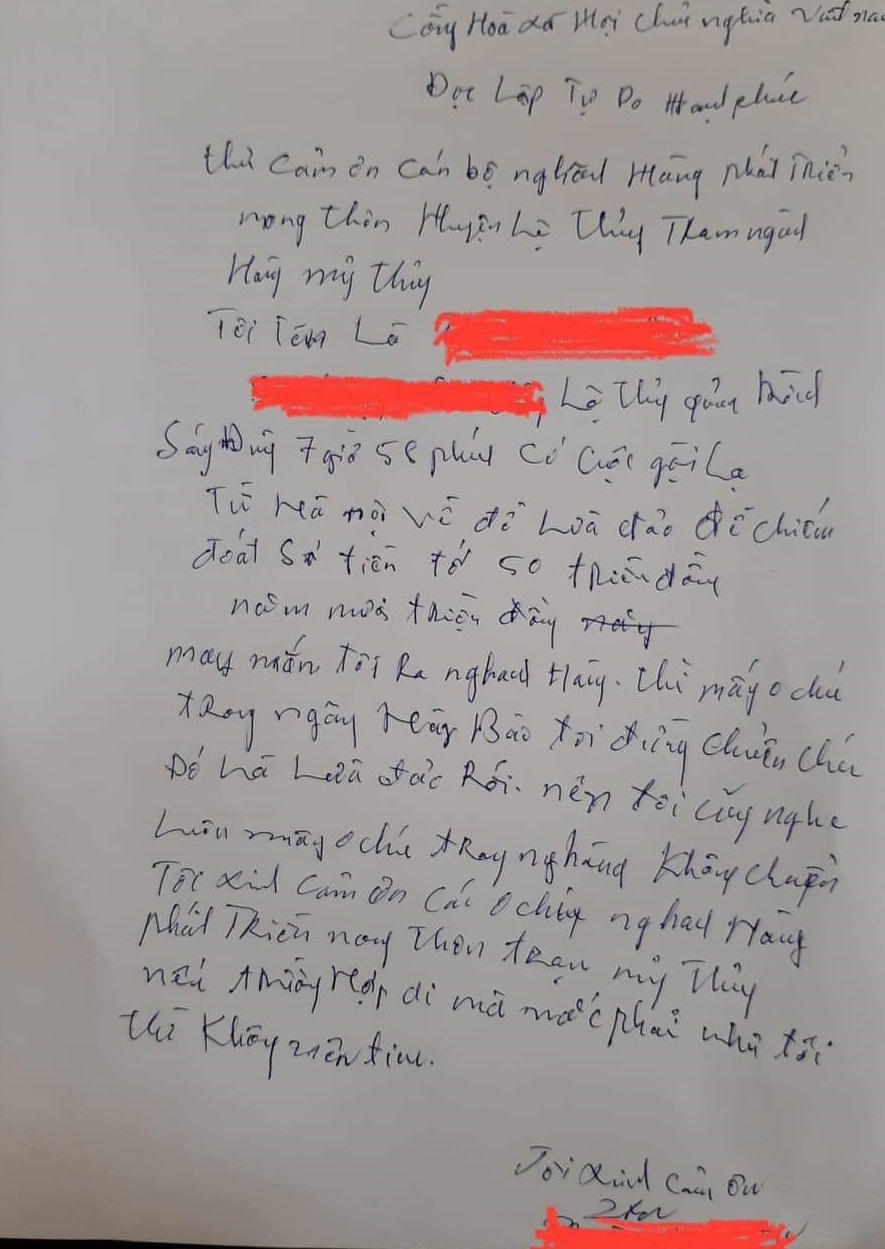 Cộng Hoà xã Hội chủ nghĩa Việt na
Độc Lập Tự Do Hạnh phúc
thư cảm ơn cán bộ nghâu Hàng phát Triển
nong thôn Huyện Lệ Thủy Tham ngâu
Hàng mỹ thủy
Tôi Tên Là
Lệ thủy quảng Bình
Sáng 7 giờ 58 phút có cuộc gọi Lạ
Từ Hà nội về để Lừa đảo để chiếm
đoát Số tiền tới 50 triệu đồng
năm mươi triệu đồng này
may mắn tôi Ra nghauh Hàng. thì mấy o chú
trong ngân Hàng Bảo tôi đừng chuyển chú
Đó Là Lừa đảo Rồi. nên tôi cũng nghe
Luôn mấy o chú trong nghâng không chuyển
Tôi xinh cảm ơn các o chú nghauh Hàng
phát Triển nong thon trạm mỹ Thủy
nếu trường Hợp đi mà mước phải như tôi
thì không nên tin.
Tôi xinh cảm ơn